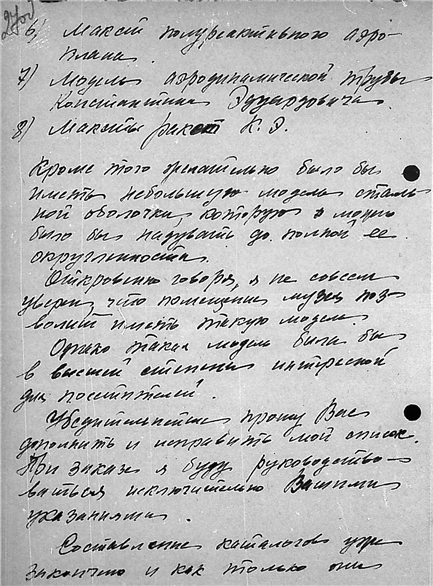 6) Макет полуреактивного аэро-
плана.
7) Модель аэродинамической трубы
Константина Эдуардовича.
8) Макеты ракет К. Э.
Кроме того желательно было бы
иметь небольшую модель сталь-
ной оболочки, которую можно
было бы надувать до полной ее
округленности.
Откровенно говоря, я не совсем
уверен, что помещение музея поз-
волит иметь такую модель.
Однако такая модель была бы
в высшей степени интересной
для посетителей.
Убедительнейше прошу Вас
дополнить и исправить мой список.
При заказе я буду руководство-
ваться исключительно Вашими
указаниями.
Составление каталогов уже
закончено и как только они